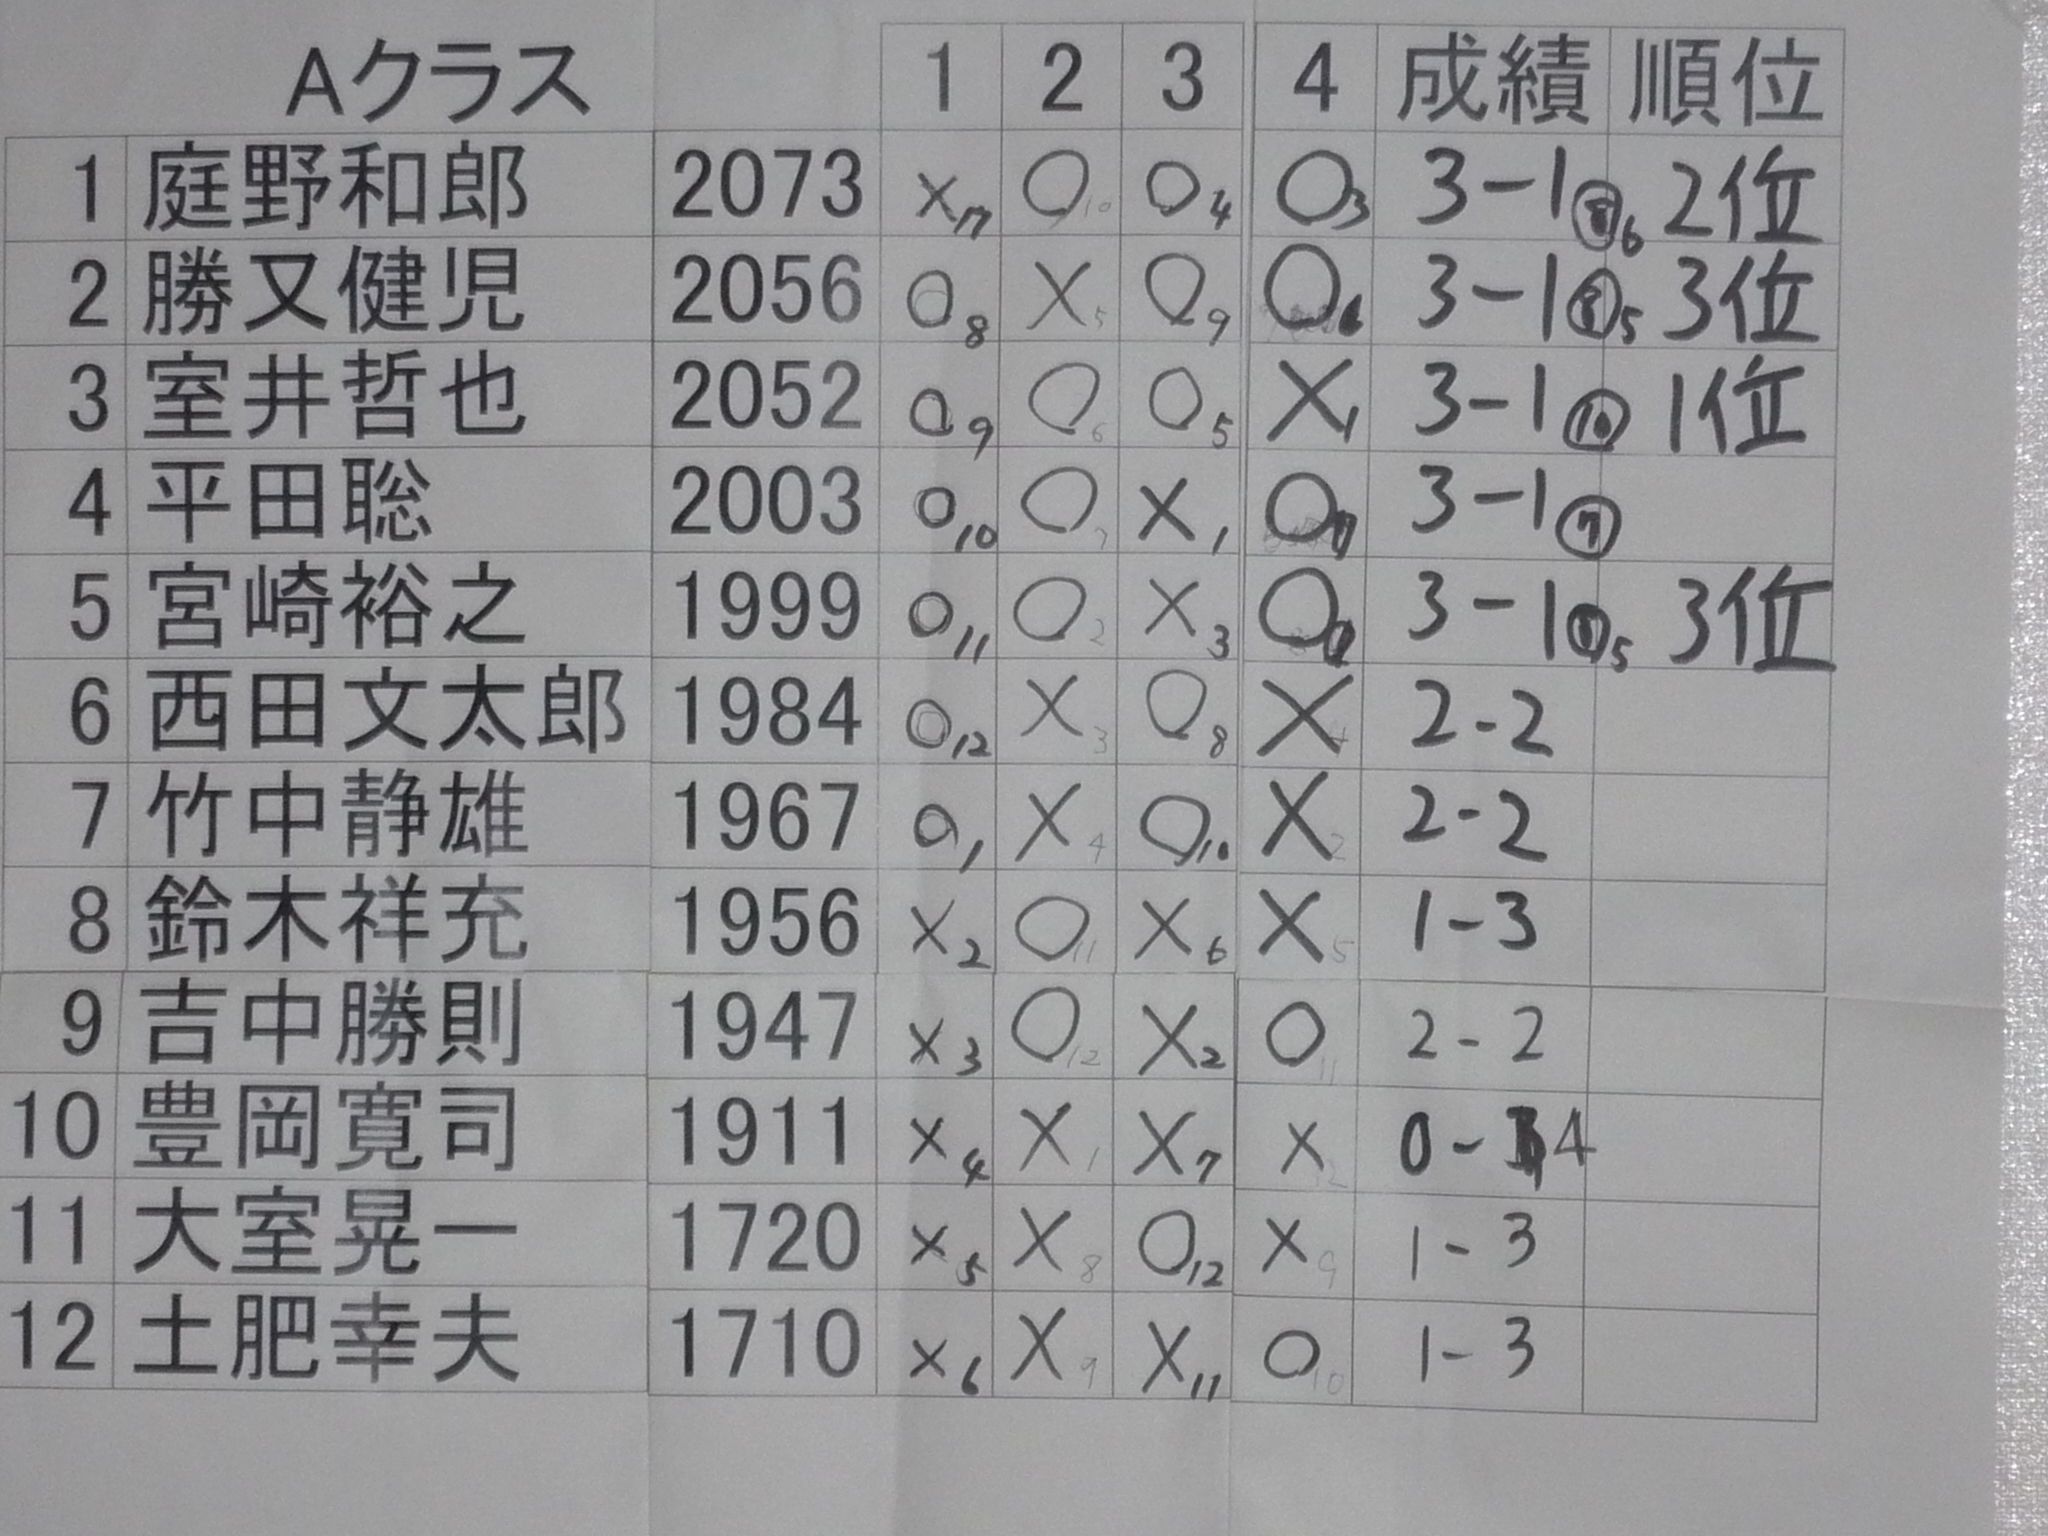 Aクラス 1 2 3 4 成績 順位
1 庭野和郎 2073 ×7 ○10 ○4 ○3 3-1 ⑧6 2位
2 勝又健児 2056 ○8 ×5 ○9 ○6 3-1 ⑧5 3位
3 室井哲也 2052 ○9 ○6 ○5 ×1 3-1 ⑩ 1位
4 平田聡 2003 ○10 ○7 ×1 ○ 3-1 ⑦
5 宮崎裕之 1999 ○11 ○2 ×3 ○8 3-1 ⑧5 3位
6 西田文太郎 1984 ○12 ×3 ○8 × 2-2
7 竹中静雄 1967 ○1 ×4 ○10 ×2 2-2
8 鈴木祥充 1956 ×2 ○11 ×6 ×5 1-3
9 吉中勝則 1947 ×3 ○12 ×2 ○11 2-2
10 豊岡寛司 1911 ×4 ×1 ×7 ×12 0-4
11 大室晃一 1720 ×5 ×8 ○12 ×9 1-3
12 土肥幸夫 1710 ×6 ×9 ×11 ○10 1-3